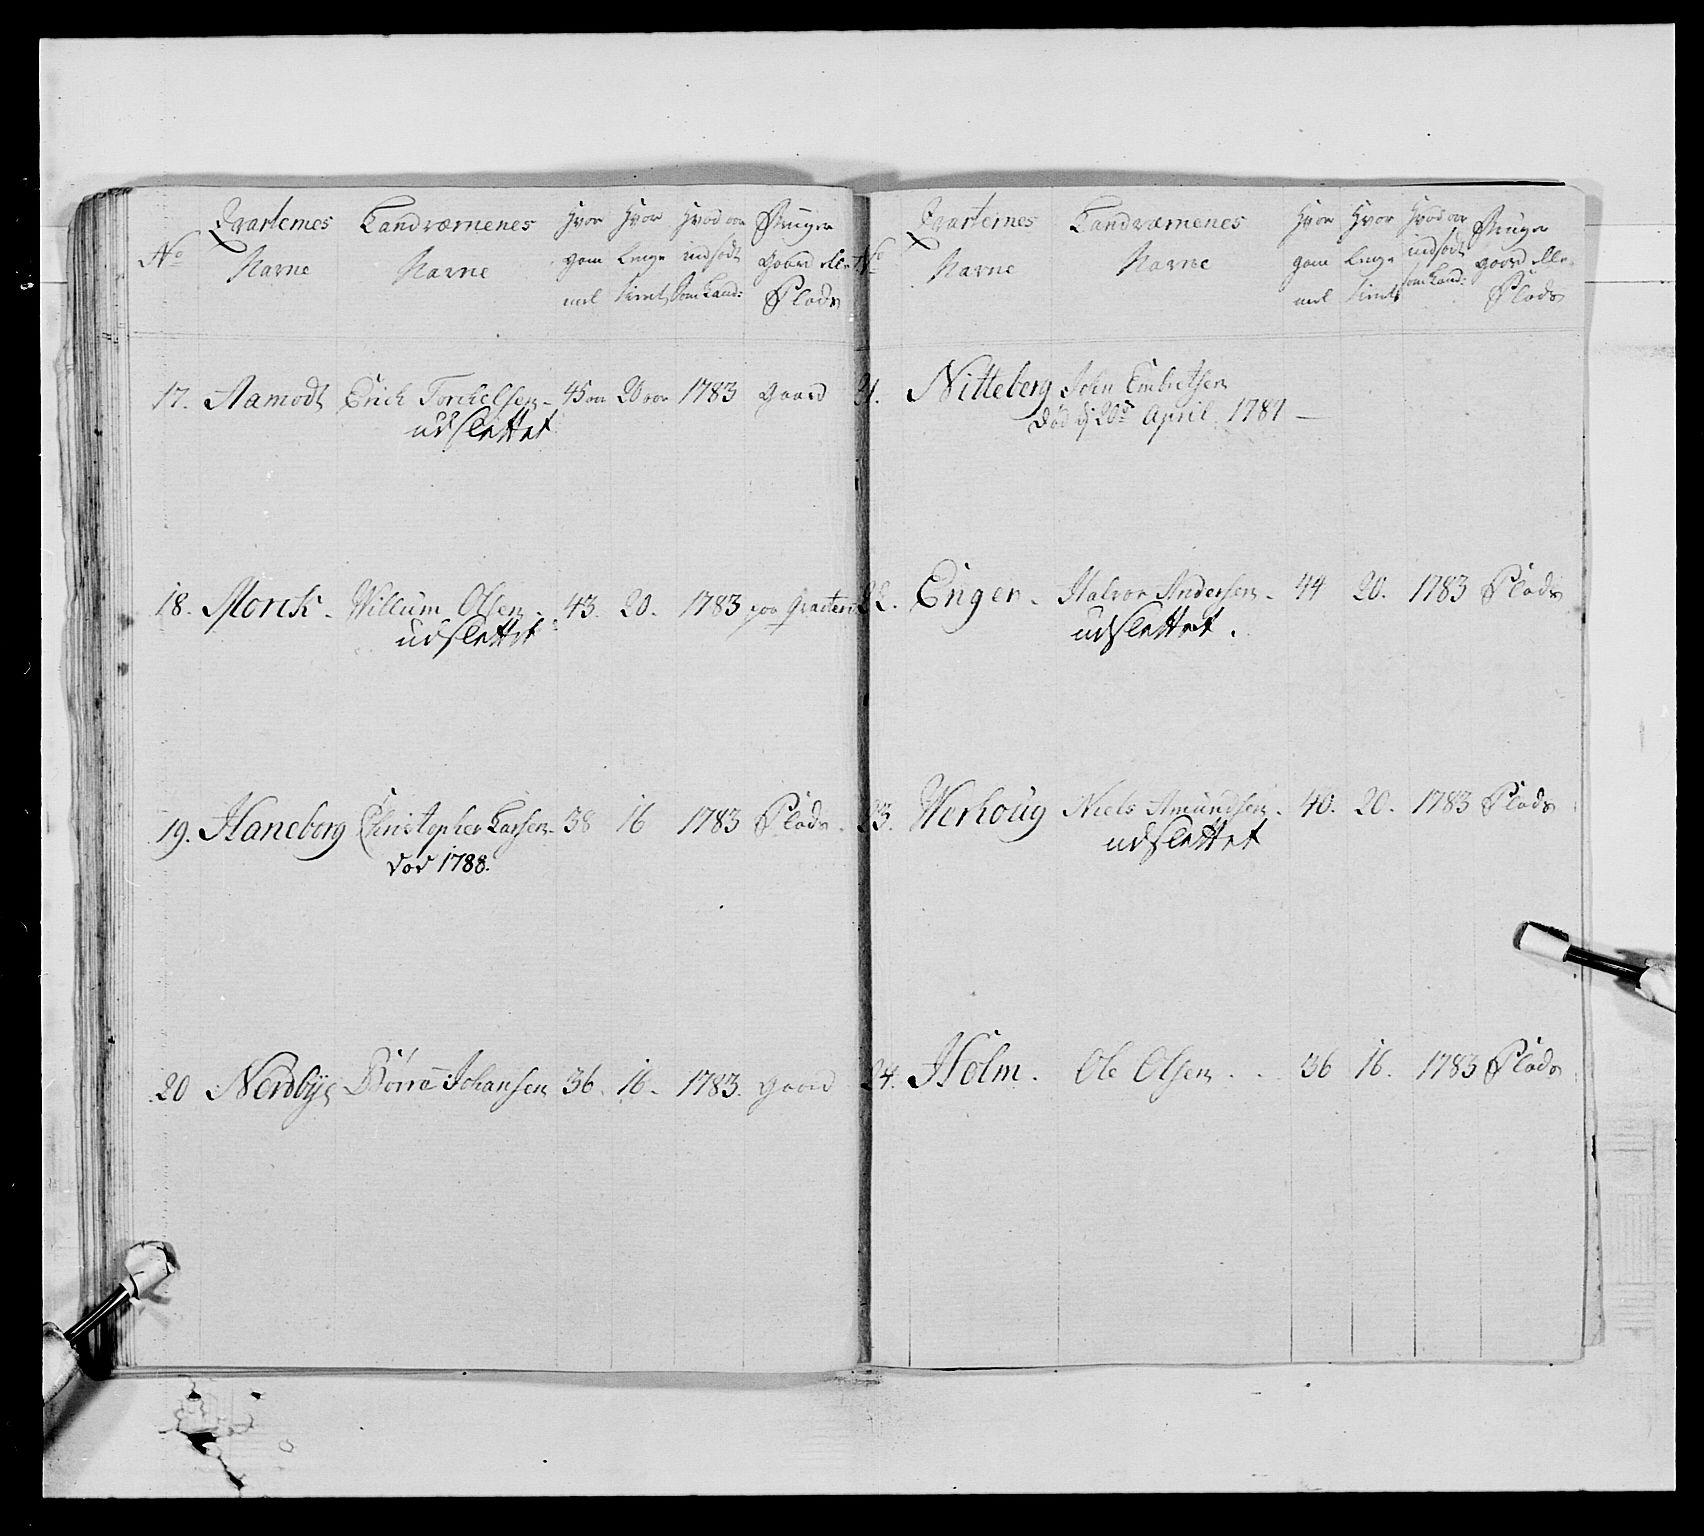 No
Qvarternes Navne
Landværnenes Navne
Hvor gam mel
Hvor Lenge tient
Hvad aar indsadt som Land:
Bruger gaard eller Plads
17. Aamodt Erich Torchelsen - 45 aar 20 aar 1783 gaard
udslettet
18. Morck - Willum Olsen - 43. 20. 1783 paa Qvarteret
udslettet
19. Haneborg Christopher Larsen - 38 16 1783 Plads.
død 1788.
20 Nordbye Børre Johansen 36. 16. 1783. gaard
No
Qvarternes Navne
Landværnenes Navne
Hvor gam mel
Hvor Lenge tient
Hvad aar indsadt som Land:
Bruger gaard eller Plads
21. Nitteberg John Embretsen
død d 20de April 1787 —
22. Enger - Halvor Andersen - 44 20. 1783 Plads
udslettet.
23. Werhoug Niels Amundsen - 40. 20. 1783 Plads
udslettet
24. Holm. Ole Olsen - - 36 16. 1783 Plads